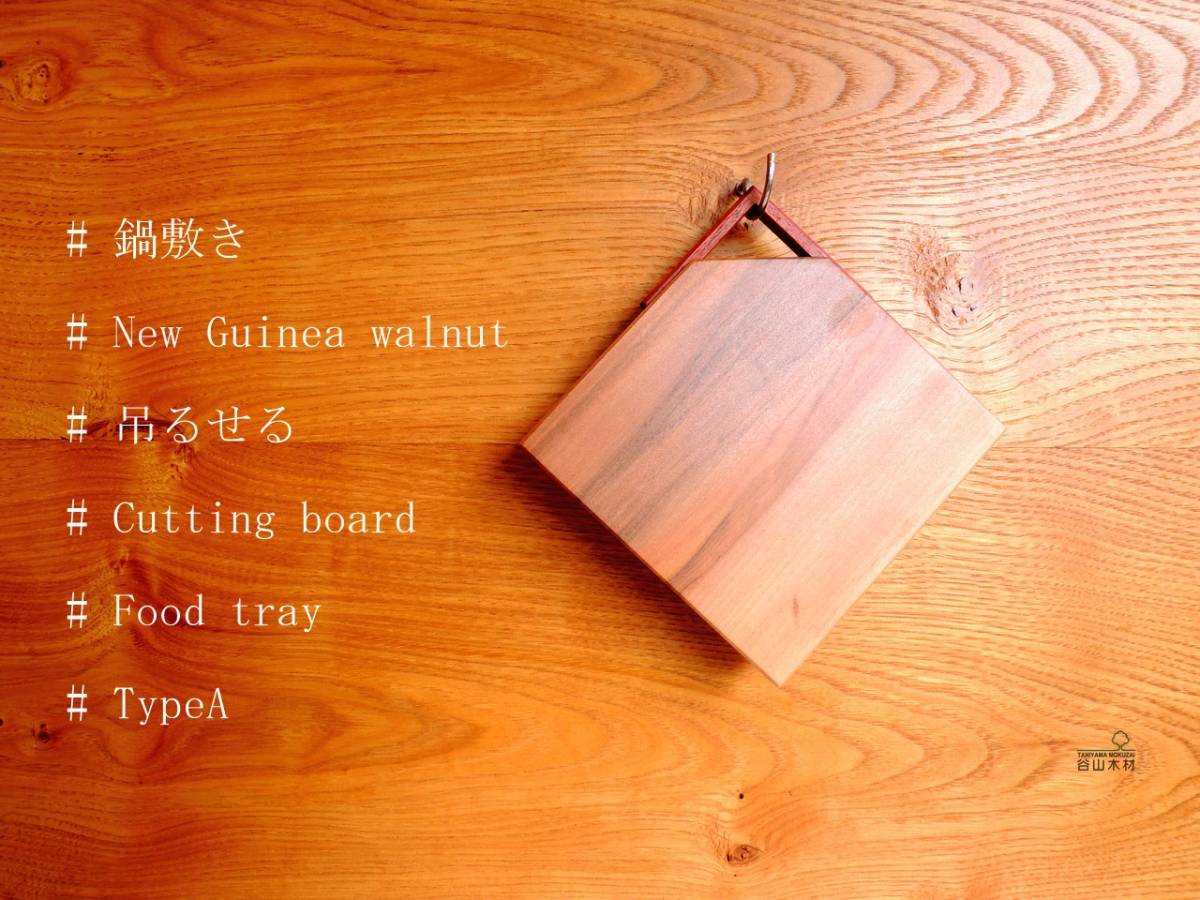 # 鍋敷き
# New Guinea walnut
# 吊るせる
# Cutting board
# Food tray
# TypeA
TANIYAMA MOKUZAI
谷山木材